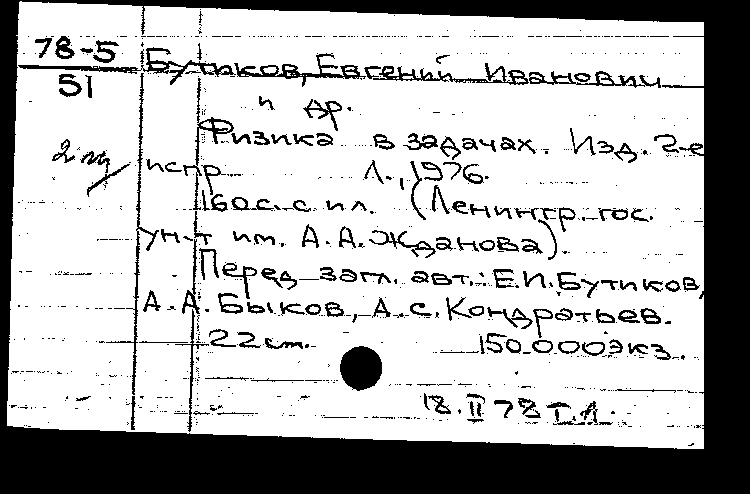 78-5
51
Бутиков, Евгений Иванович
и др.
Физика в задачах. Изд. 2-е
испр Л., 1976.
160с. с ил. (Ленингр. гос.
ун-т им. А.А.Жданова).
Перед загл. авт.: Е.И.Бутиков,
А.А.Быков, А.С.Кондратьев.
22 см. 150.000 экз.
18.II 78 Г.Л.